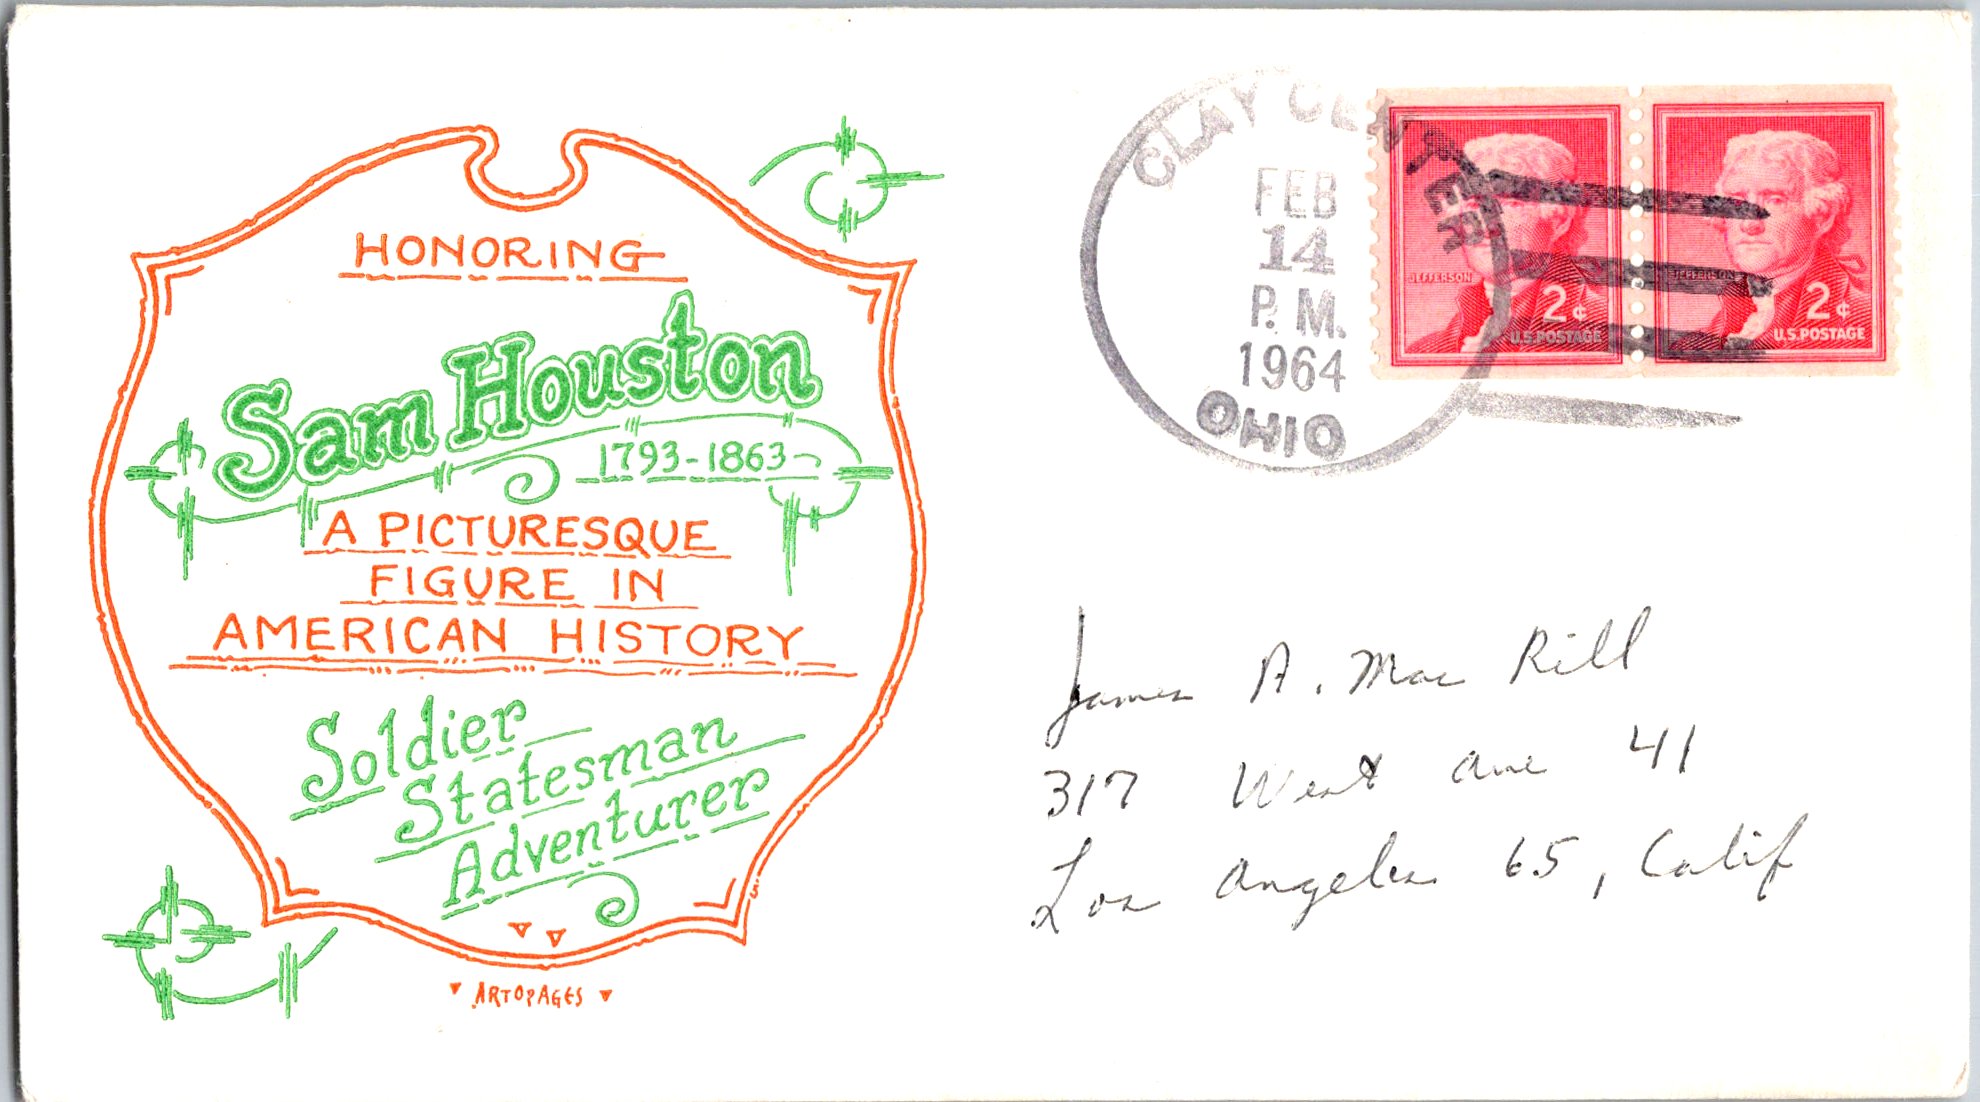 HONORING
Sam Houston
1793-1863
A PICTURESQUE
FIGURE IN
AMERICAN HISTORY
Soldier
Statesman
Adventurer
ARTOPAGES
CLAY CENTER
FEB
14
P. M.
1964
OHIO
JEFFERSON
2¢
U.S. POSTAGE
JEFFERSON
2¢
U.S. POSTAGE
James A. Mac Rill
317 West Ave 41
Los Angeles 65, Calif